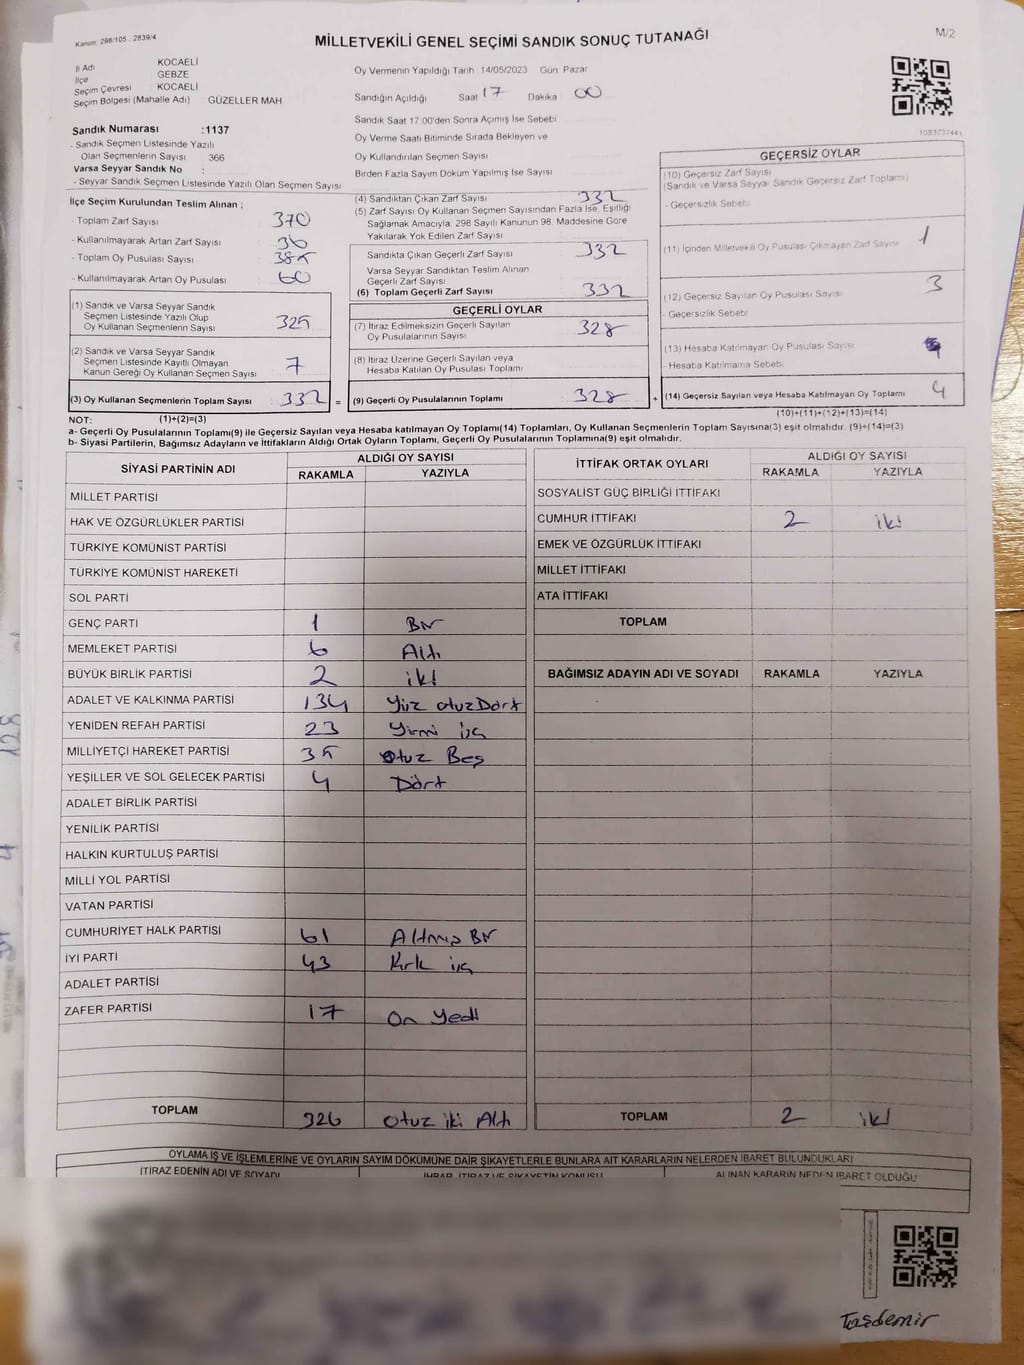 Kanun: 298/105 , 2839/4
MİLLETVEKİLİ GENEL SEÇİMİ SANDIK SONUÇ TUTANAĞI
M/2
İl Adı KOCAELİ
İlçe GEBZE
Seçim Çevresi KOCAELİ
Seçim Bölgesi (Mahalle Adı) GÜZELLER MAH
Sandık Numarası :1137
- Sandık Seçmen Listesinde Yazılı
Olan Seçmenlerin Sayısı 366
Varsa Seyyar Sandık No :
- Seyyar Sandık Seçmen Listesinde Yazılı Olan Seçmen Sayısı
Oy Vermenin Yapıldığı Tarih 14/05/2023 Gün: Pazar
Sandığın Açıldığı Saat 17 Dakika 00
Sandık Saat 17 00'den Sonra Açımış İse Sebebi
Oy Verme Saati Bitiminde Sırada Bekleyen ve
Oy Kullandırılan Seçmen Sayısı
Birden Fazla Sayım Döküm Yapılmış İse Sayısı
1083737441
İlçe Seçim Kurulundan Teslim Alınan ;
- Toplam Zarf Sayısı 370
- Kullanılmayarak Artan Zarf Sayısı 38
- Toplam Oy Pusulası Sayısı 385
- Kullanılmayarak Artan Oy Pusulası 60
(1) Sandık ve Varsa Seyyar Sandık
Seçmen Listesinde Yazılı Olup
Oy Kullanan Seçmenlerin Sayısı 325
(2) Sandık ve Varsa Seyyar Sandık
Seçmen Listesinde Kayıtlı Olmayan
Kanun Gereği Oy Kullanan Seçmen Sayısı 7
(3) Oy Kullanan Seçmenlerin Toplam Sayısı 332 =
(4) Sandıktan Çıkan Zarf Sayısı 332
(5) Zarf Sayısı Oy Kullanan Seçmen Sayısından Fazla İse, Eşitliği
Sağlamak Amacıyla, 298 Sayılı Kanunun 98. Maddesine Göre
Yakılarak Yok Edilen Zarf Sayısı
Sandıkta Çıkan Geçerli Zarf Sayısı 332
Varsa Seyyar Sandıktan Teslim Alınan
Geçerli Zarf Sayısı
(6) Toplam Geçerli Zarf Sayısı 332
GEÇERLİ OYLAR
(7) İtiraz Edilmeksizin Geçerli Sayılan
Oy Pusulalarının Sayısı 328
(8) İtiraz Üzerine Geçerli Sayılan veya
Hesaba Katılan Oy Pusulası Toplamı
(9) Geçerli Oy Pusulalarının Toplamı 328 +
GEÇERSİZ OYLAR
(10) Geçersiz Zarf Sayısı
(Sandık ve Varsa Seyyar Sandık Geçersiz Zarf Toplamı)
- Geçersizlik Sebebi
(11) İçinden Milletvekili Oy Pusulası Çıkmayan Zarf Sayısı 1
(12) Geçersiz Sayılan Oy Pusulası Sayısı 3
- Geçersizlik Sebebi
(13) Hesaba Katılmayan Oy Pusulası Sayısı
- Hesaba Katılmama Sebebi
(14) Geçersiz Sayılan veya Hesaba Katılmayan Oy Toplamı 4
NOT: (1)+(2)=(3)
(10)+(11)+(12)+(13)=(14)
a- Geçerli Oy Pusulalarının Toplamı(9) ile Geçersiz Sayılan veya Hesaba katılmayan Oy Toplamı(14) Toplamları, Oy Kullanan Seçmenlerin Toplam Sayısına(3) eşit olmalıdır. (9)+(14)=(3)
b- Siyasi Partilerin, Bağımsız Adayların ve İttifakların Aldığı Ortak Oyların Toplamı, Geçerli Oy Pusulalarının Toplamına(9) eşit olmalıdır.
SİYASİ PARTİNİN ADI ALDIĞI OY SAYISI
RAKAMLA YAZIYLA
MİLLET PARTİSİ
HAK VE ÖZGÜRLÜKLER PARTİSİ
TÜRKİYE KOMÜNİST PARTİSİ
TÜRKİYE KOMÜNİST HAREKETİ
SOL PARTİ
GENÇ PARTİ 1 Bir
MEMLEKET PARTİSİ 6 Altı
BÜYÜK BİRLİK PARTİSİ 2 iki
ADALET VE KALKINMA PARTİSİ 134 Yüz otuzDört
YENİDEN REFAH PARTİSİ 23 Yirmi üç
MİLLİYETÇİ HAREKET PARTİSİ 35 otuz Beş
YEŞİLLER VE SOL GELECEK PARTİSİ 4 Dört
ADALET BİRLİK PARTİSİ
YENİLİK PARTİSİ
HALKIN KURTULUŞ PARTİSİ
MİLLİ YOL PARTİSİ
VATAN PARTİSİ
CUMHURİYET HALK PARTİSİ 61 Altmış Bir
İYİ PARTİ 43 Kırk üç
ADALET PARTİSİ
ZAFER PARTİSİ 17 On Yedi
TOPLAM 326 otuz iki Altı
İTTİFAK ORTAK OYLARI ALDIĞI OY SAYISI
RAKAMLA YAZIYLA
SOSYALİST GÜÇ BİRLİĞİ İTTİFAKI
CUMHUR İTTİFAKI 2 iki
EMEK VE ÖZGÜRLÜK İTTİFAKI
MİLLET İTTİFAKI
ATA İTTİFAKI
TOPLAM
BAĞIMSIZ ADAYIN ADI VE SOYADI RAKAMLA YAZIYLA
TOPLAM 2 iki
OYLAMA İŞ VE İŞLEMLERİNE VE OYLARIN SAYIM DÖKÜMÜNE DAİR ŞİKAYETLERLE BUNLARA AİT KARARLARIN NELERDEN İBARET BULUNDUKLARI
İTİRAZ EDENİN ADI VE SOYADI İHBAR, İTİRAZ VE ŞİKAYETİN KONUSU ALINAN KARARIN NEDEN İBARET OLDUĞU
Taşdemir